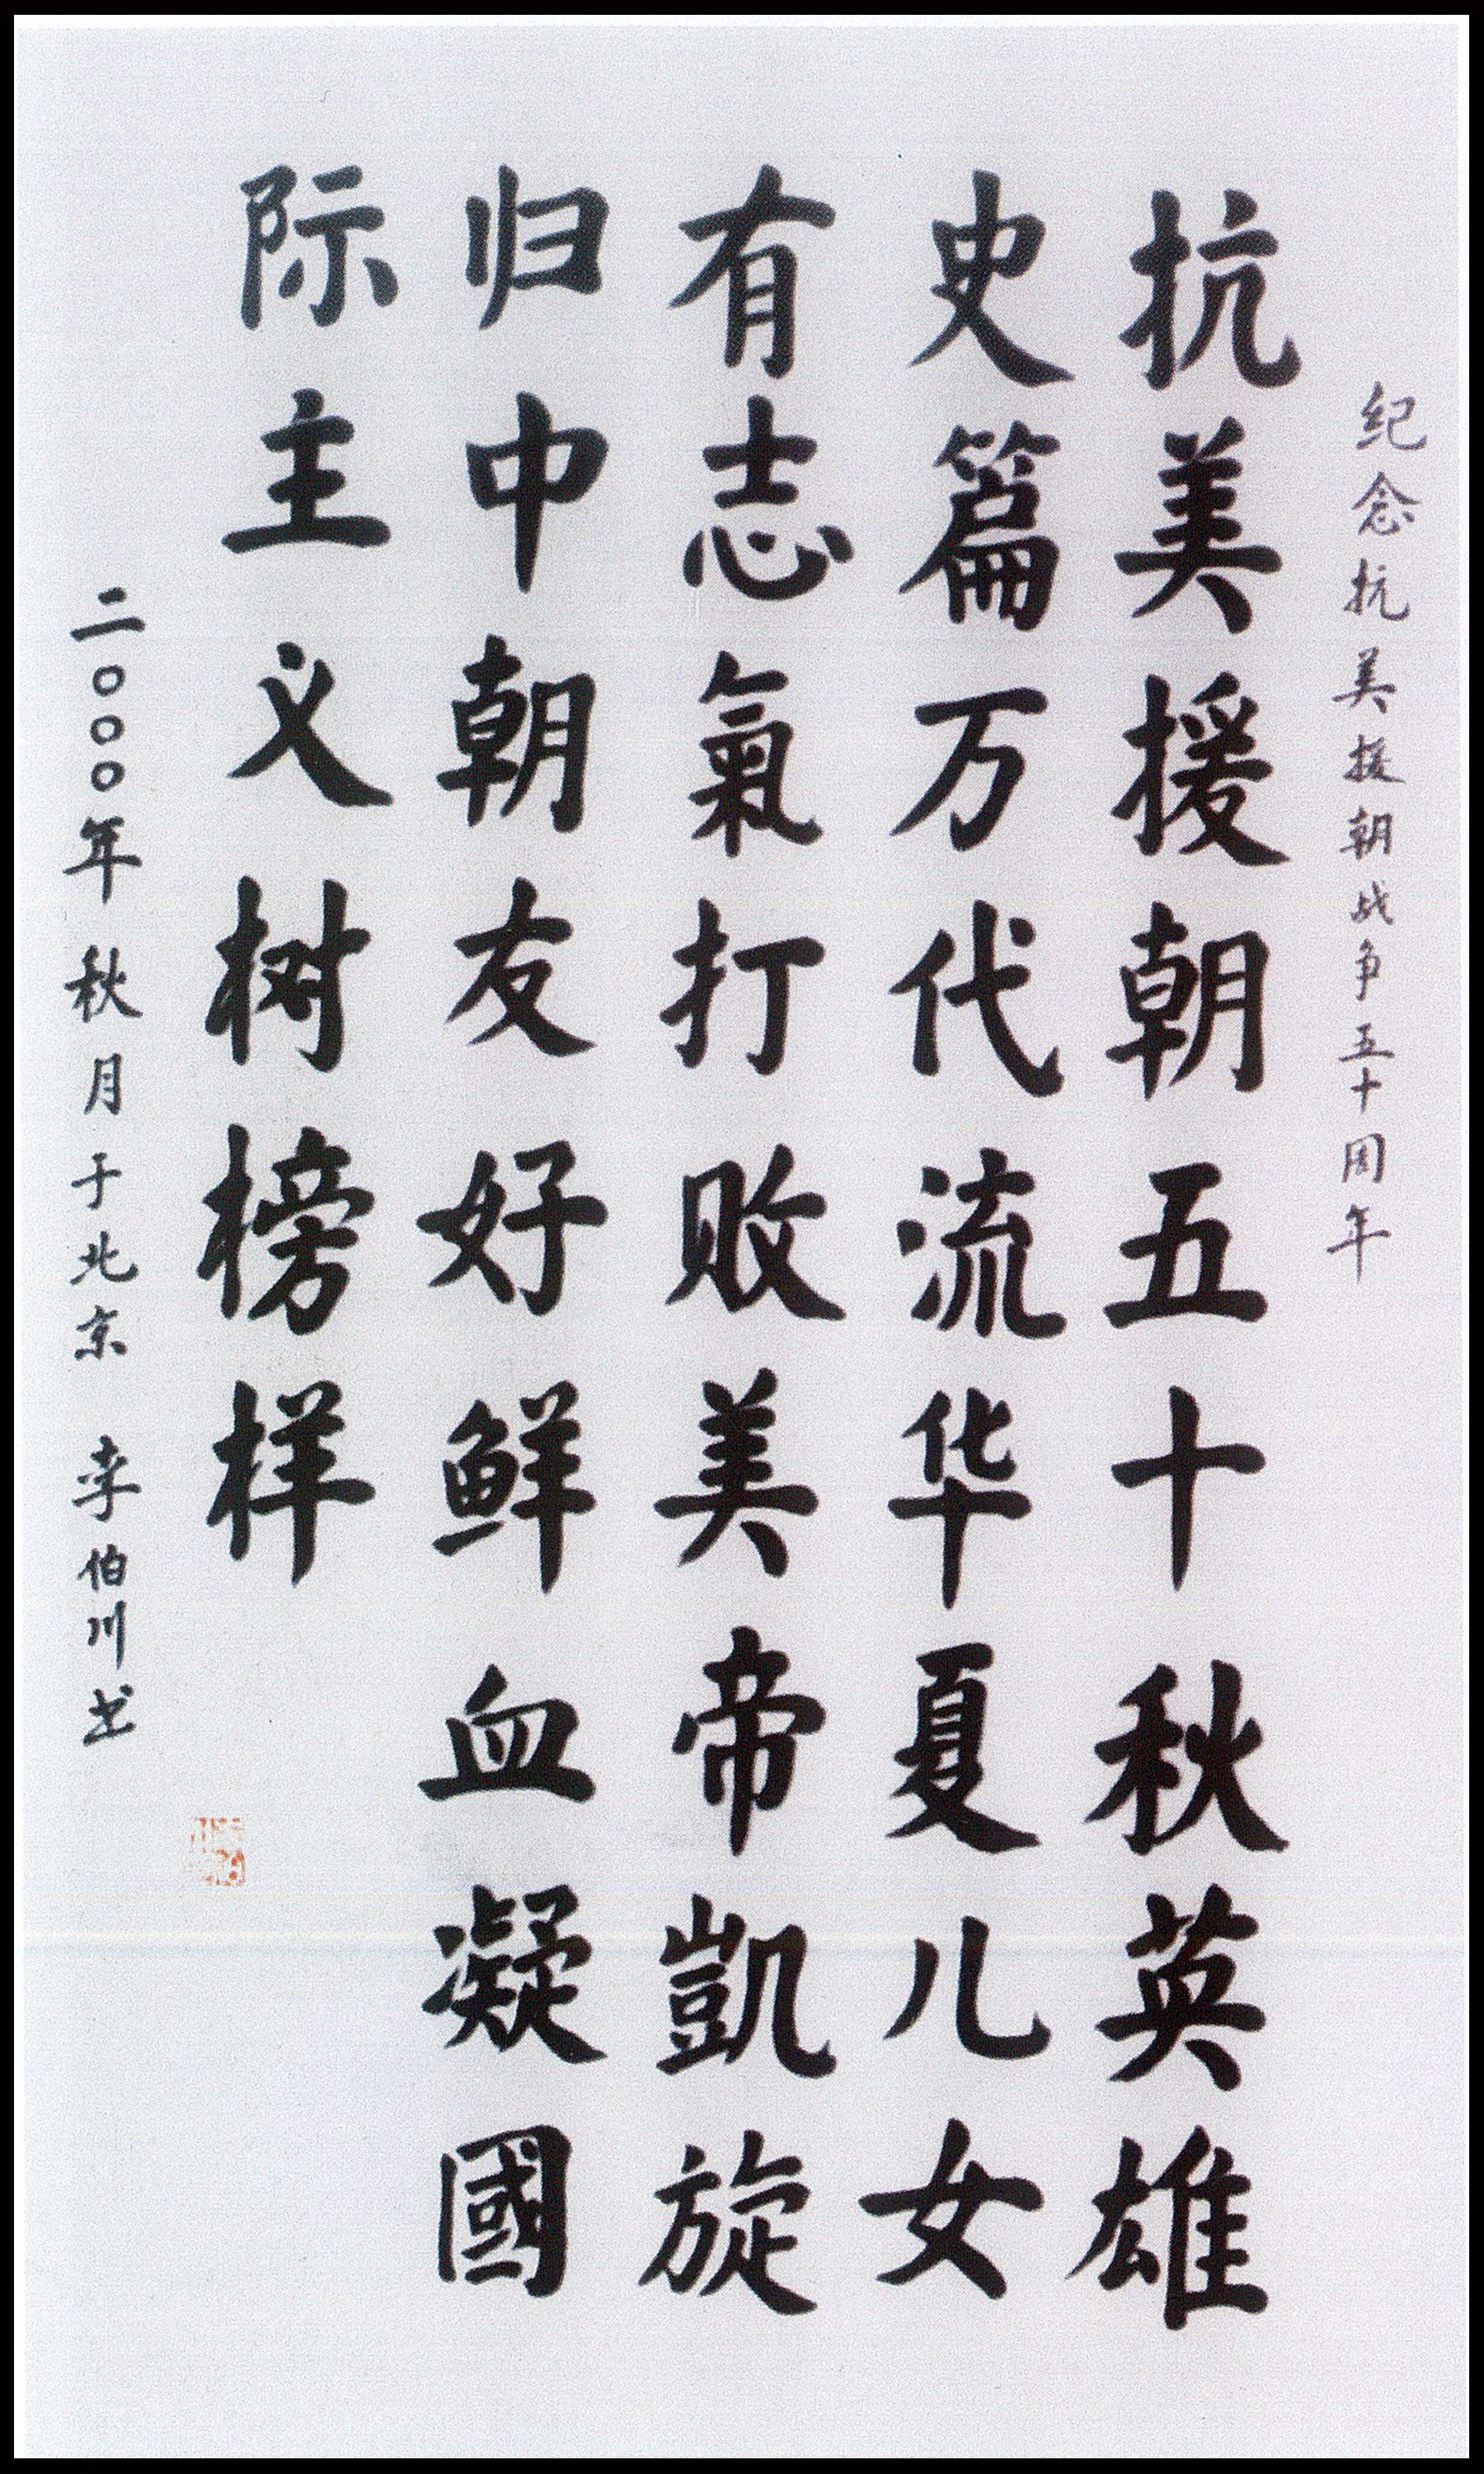 纪念抗美援朝战争五十周年
抗美援朝五十秋英雄
史篇万代流华夏儿女
有志氣打败美帝凱旋
归中朝友好鲜血凝國
际主义树榜样
二〇〇〇年秋月于北京 李伯川书